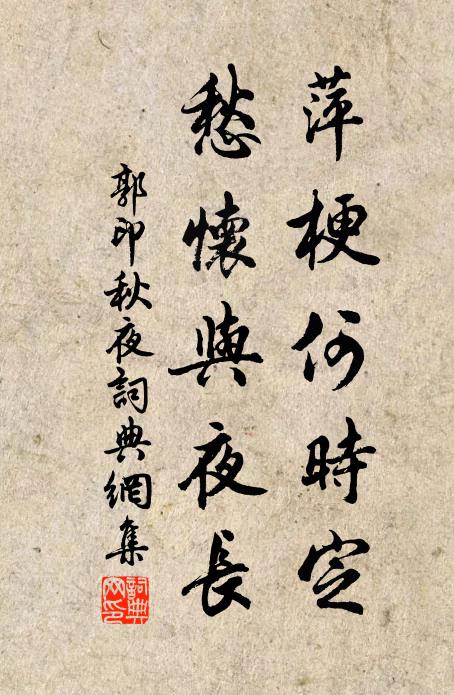 萍梗何時定
愁懷與夜長
郭印秋夜詞典網集
詞典網印